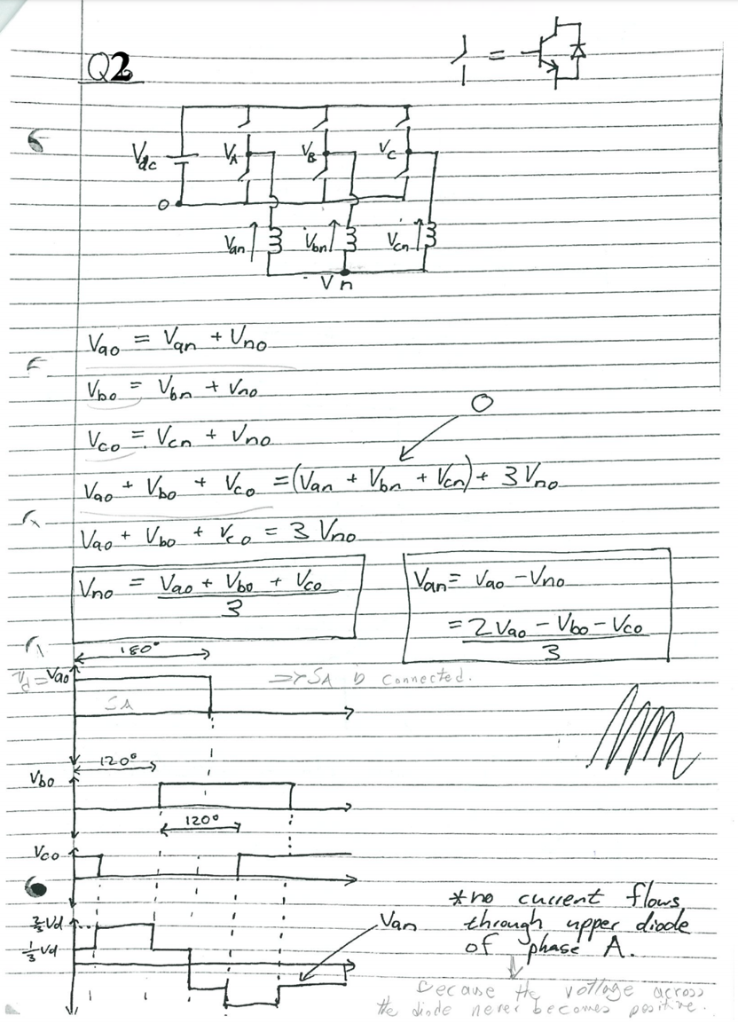 Q2
=
Vdc
VA
VB
VC
0
Van
Vbn
Vcn
Vn
Vao = Van + Vno
Vbo = Vbn + Vno
Vco = Vcn + Vno
0
Vao + Vbo + Vco = (Van + Vbn + Vcn) + 3Vno
Vao + Vbo + Vco = 3 Vno
Vno = Vao + Vbo + Vco / 3
Van = Vao - Vno
= 2Vao - Vbo - Vco / 3
180°
Vd = Vao
SA
=> SA is connected.
120°
Vbo
120°
Vco
2/3 Vd
1/3 Vd
Van
*no current flows
through upper diode
of phase A.
because the voltage across
the diode never becomes positive.